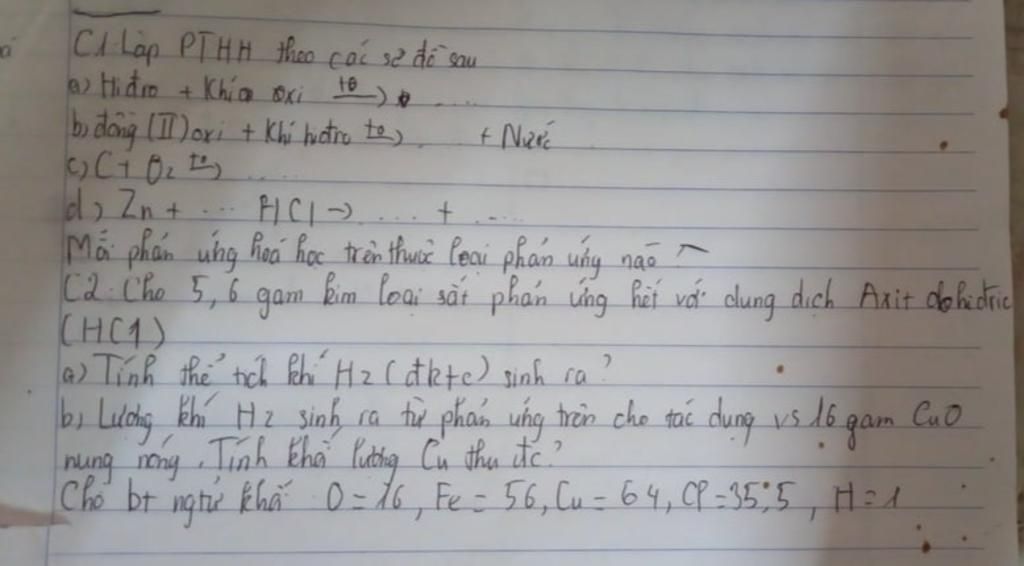 C1. Lập PTHH theo các sơ đồ sau
a) Hiđro + Khí oxi t0→ ....
b) đồng (II) oxi + Khí hiđro t0→ ... + Nước
c) C + O2 t0→ ....
d) Zn + ... HCl → .... + ....
Mỗi phản ứng hoá học trên thuộc loại phản ứng nào
C2. Cho 5,6 gam kim loại sắt phản ứng hết với dung dịch Axit clohiđric
(HC1)
a) Tính thể tích khí H2 (đktc) sinh ra?
b) Lượng khí H2 sinh ra từ phản ứng trên cho tác dụng vs 16 gam CuO
nung nóng. Tính khối lượng Cu thu đc?
Cho bt ngtử khối O = 16, Fe = 56, Cu = 64, Cl = 35,5, H = 1